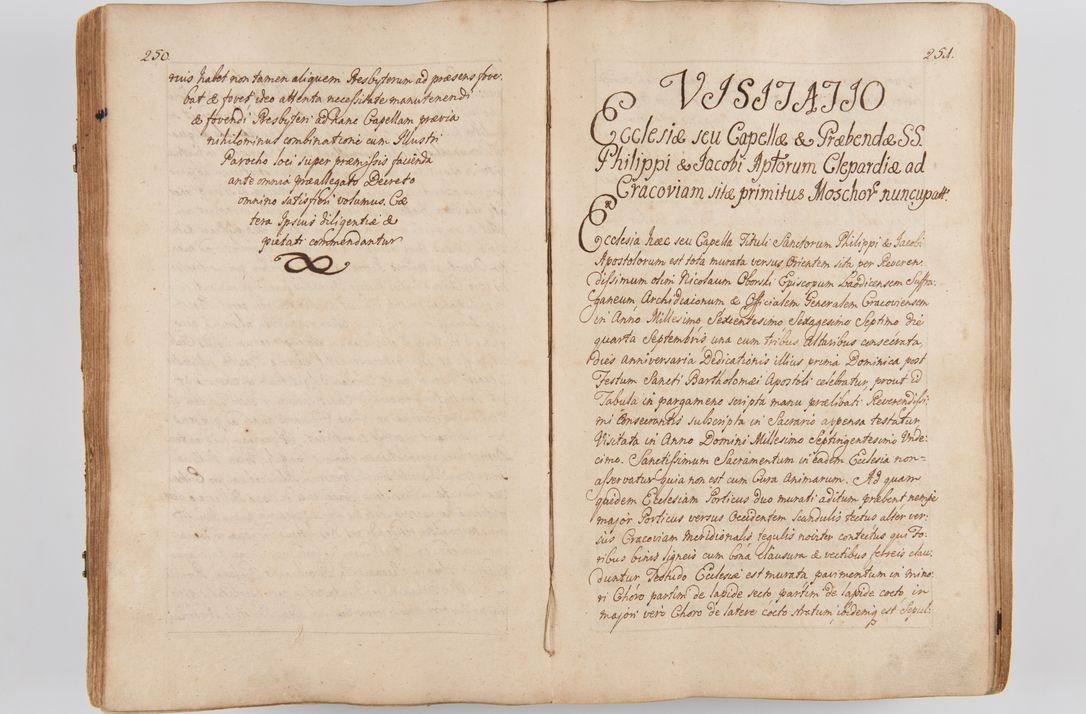 250.
nuis habet non tamen aliquem Presbyterum ad præsens fove-
bat & fovet ideo attenta necessitate manutenendi
& fovendi Presbyteri ad hanc Capellam prævia
nihilominus combinatione cum Illustri
Parocho loci super præmissis facienda
ante omnia præallegato Decreto
omnino satisfieri volumus. Cæ
tera Ipsius diligentiæ &
pietati commendantur
251.
VISITATIO
Ecclesiæ seu Capellæ & Præbendæ SS.
Philippi & Jacobi Aptorum Clepardiæ ad
Cracoviam sitæ primitus Moschor. nuncupatæ.
Ecclesia hæc seu Capella Tituli Sanctorum Philippi & Jacobi
Apostolorum est tota murata versus Orientem sita per Reveren,
dissimum olim Nicolaum Oborski Episcopum Laodicensem Suffra-
ganeum Archidiaconum & Officialem Generalem Cracoviensem
in Anno Millesimo Sexcentesimo Sexagesimo Septimo die
quarta Septembris una cum tribus Altaribus consecrata,
dies anniversaria Dedicationis illius prima Dominica post
Festum Sancti Bartholomæi Apostoli celebratur, prout id
Tabula in pargameno scripta manu prælibati Reverendissi-
mi Consecrantis subscripta in Sacrario appensa testatur
Visitata in Anno Domini Millesimo Septingentesimo Unde-
cimo. Sanctissimum Sacramentum in eadem Ecclesia non-
asservatur quia non est cum Cura Animarum. Ad quam
quidem Ecclesiam Porticus duo murati aditum præbent nempe
major Porticus versus Occidentem Scandulis tectus alter ver-
sus Cracoviam meridionalis tegulis noviter contectus qui Fo-
ribus binis ligneis cum bona clausura & vectibus ferreis clau-
duntur Testudo Ecclesiæ est murata pavimentum in mino-
ri Choro partim de lapide secto partim de lapide cocto, in
majori vero Choro de latere cocto stratum, ibidemq est Sepul-